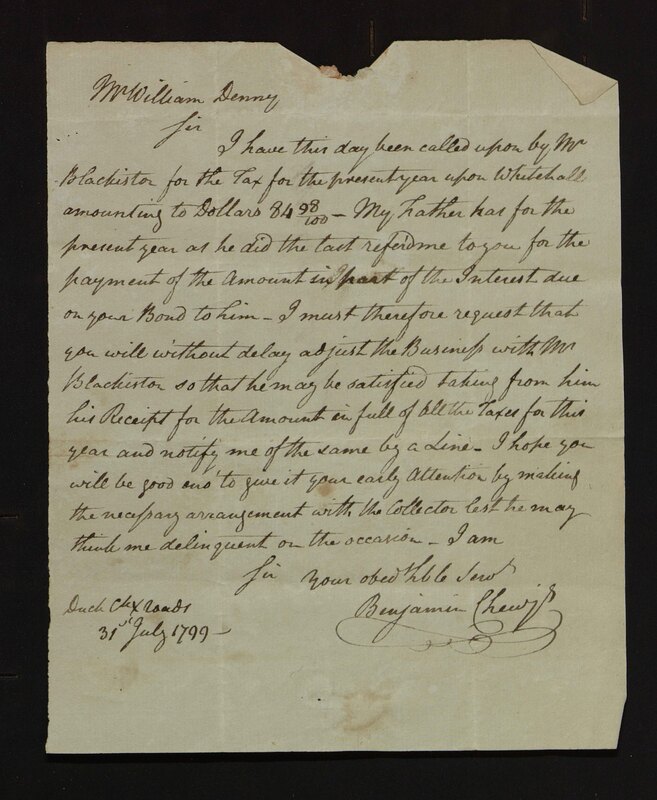 Mr William Denny
Sir
I have this day been called upon by Mr
Blackiston for the Tax for the present year upon Whitehall
amounting to Dollars 84 98/100 – My Father has for the
present year as he did the last referd me to you for the
payment of the Amount in part of the Interest due
on your Bond to him – I must therefore request that
you will without delay adjust the Business with Mr
Blackiston so that he may be satisfied taking from him
his Receipt for the Amount in full of all the Taxes for this
year and notify me of the same by a Line – I hope you
will be good eno' to give it your early Attention by making
the necessary arrangement with the Collector lest he may
think me delinquent on the occasion – I am
Sir your obed hble Servt
Benjamin Chew jr
Duck Ck X roads
31st July 1799 –